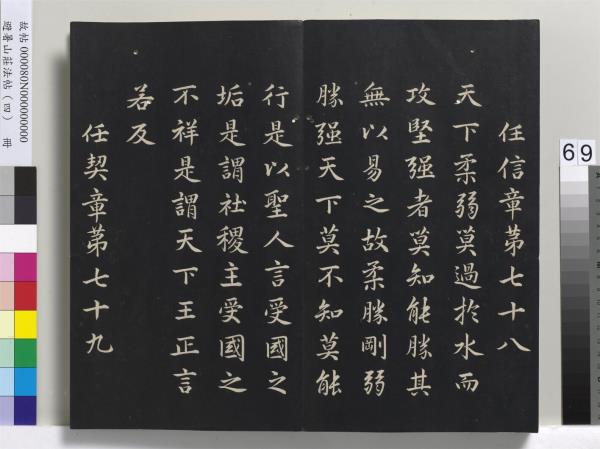 任信章苐七十八
天下柔弱莫過於水而
攻堅强者莫知能勝其
無以易之故柔勝剛弱
勝强天下莫不知莫能
行是以聖人言受國之
垢是謂社稷主受國之
不祥是謂天下王正言
若反
任契章苐七十九
故帖 000080N000000000
避暑山莊法帖(四) 冊
69